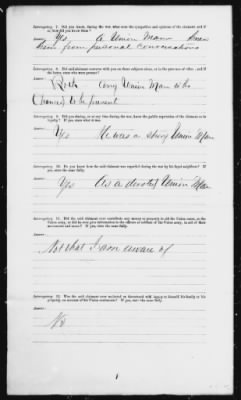 Interrogatory 7. Did you know, during the war, what were the sympathies and opinions of the claimant, and if
so, how did you know them?
Yes, a Union Man knew
them from personal conversations
Interrogatory 8. Did said claimant converse with you on these subjects alone, or in the presence of other
before any others were present?
Both any Union Man who
Chanced to be present
Interrogatory 9. Did you, during or at any time during the war, know the public reputation of the claimant as to
loyalty? If yes, state it.
Yes He was a strong Union Man
Interrogatory 10. Do you know how the said claimant was regarded during the war by his loyal neighbors? If
yes, state the same fully.
Yes As a devoted Union Man
Interrogatory 11. Did the said claimant ever contribute any money or property to aid the Union cause, or the
Union army, or did he ever give information to the officers or soldiers of the Union army, in aid of their
movement and cause? If yes, state the same fully.
Not that I am aware of
Interrogatory 12. Was the said claimant ever molested or threatened with injury to himself his family or his
property, on account of his Union sentiments? If yes, state the same fully.
No